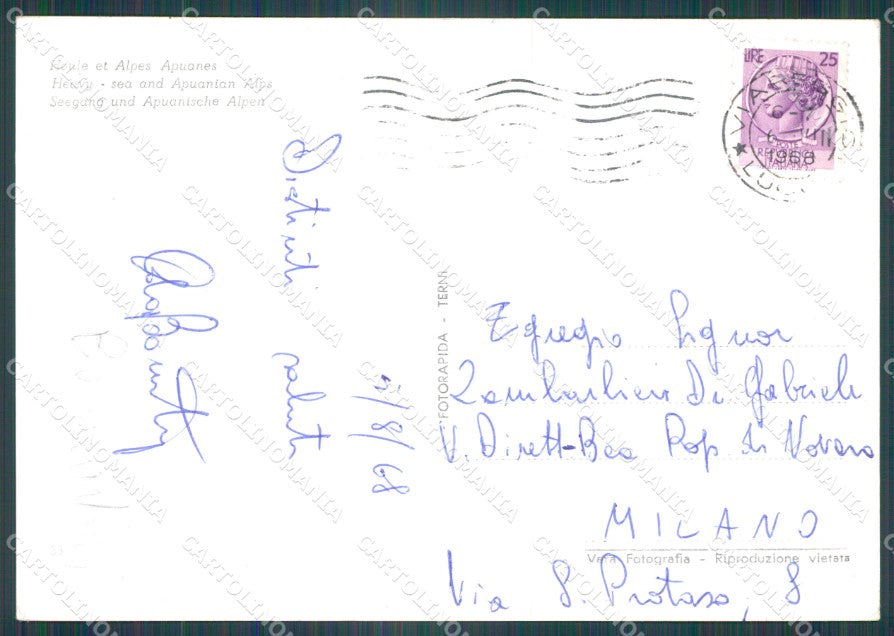 Houle et Alpes Apuanes
Heavy - sea and Apuanian Alps
Seegang und Apuanische Alpen
LIRE 25
POSTE
REPUBBLICA
ITALIANA
VIAREGGIO
1968
LUCCA
Distinti
saluti
/8/68
FOTORAPIDA - TERNI
Egregio Signor
Dr. Gabriele
V. Dirett-Bca Pop di Novara
MILANO
Vera Fotografia - Riproduzione vietata
Via S. Protaso, 8
CARTOLINOMANIA